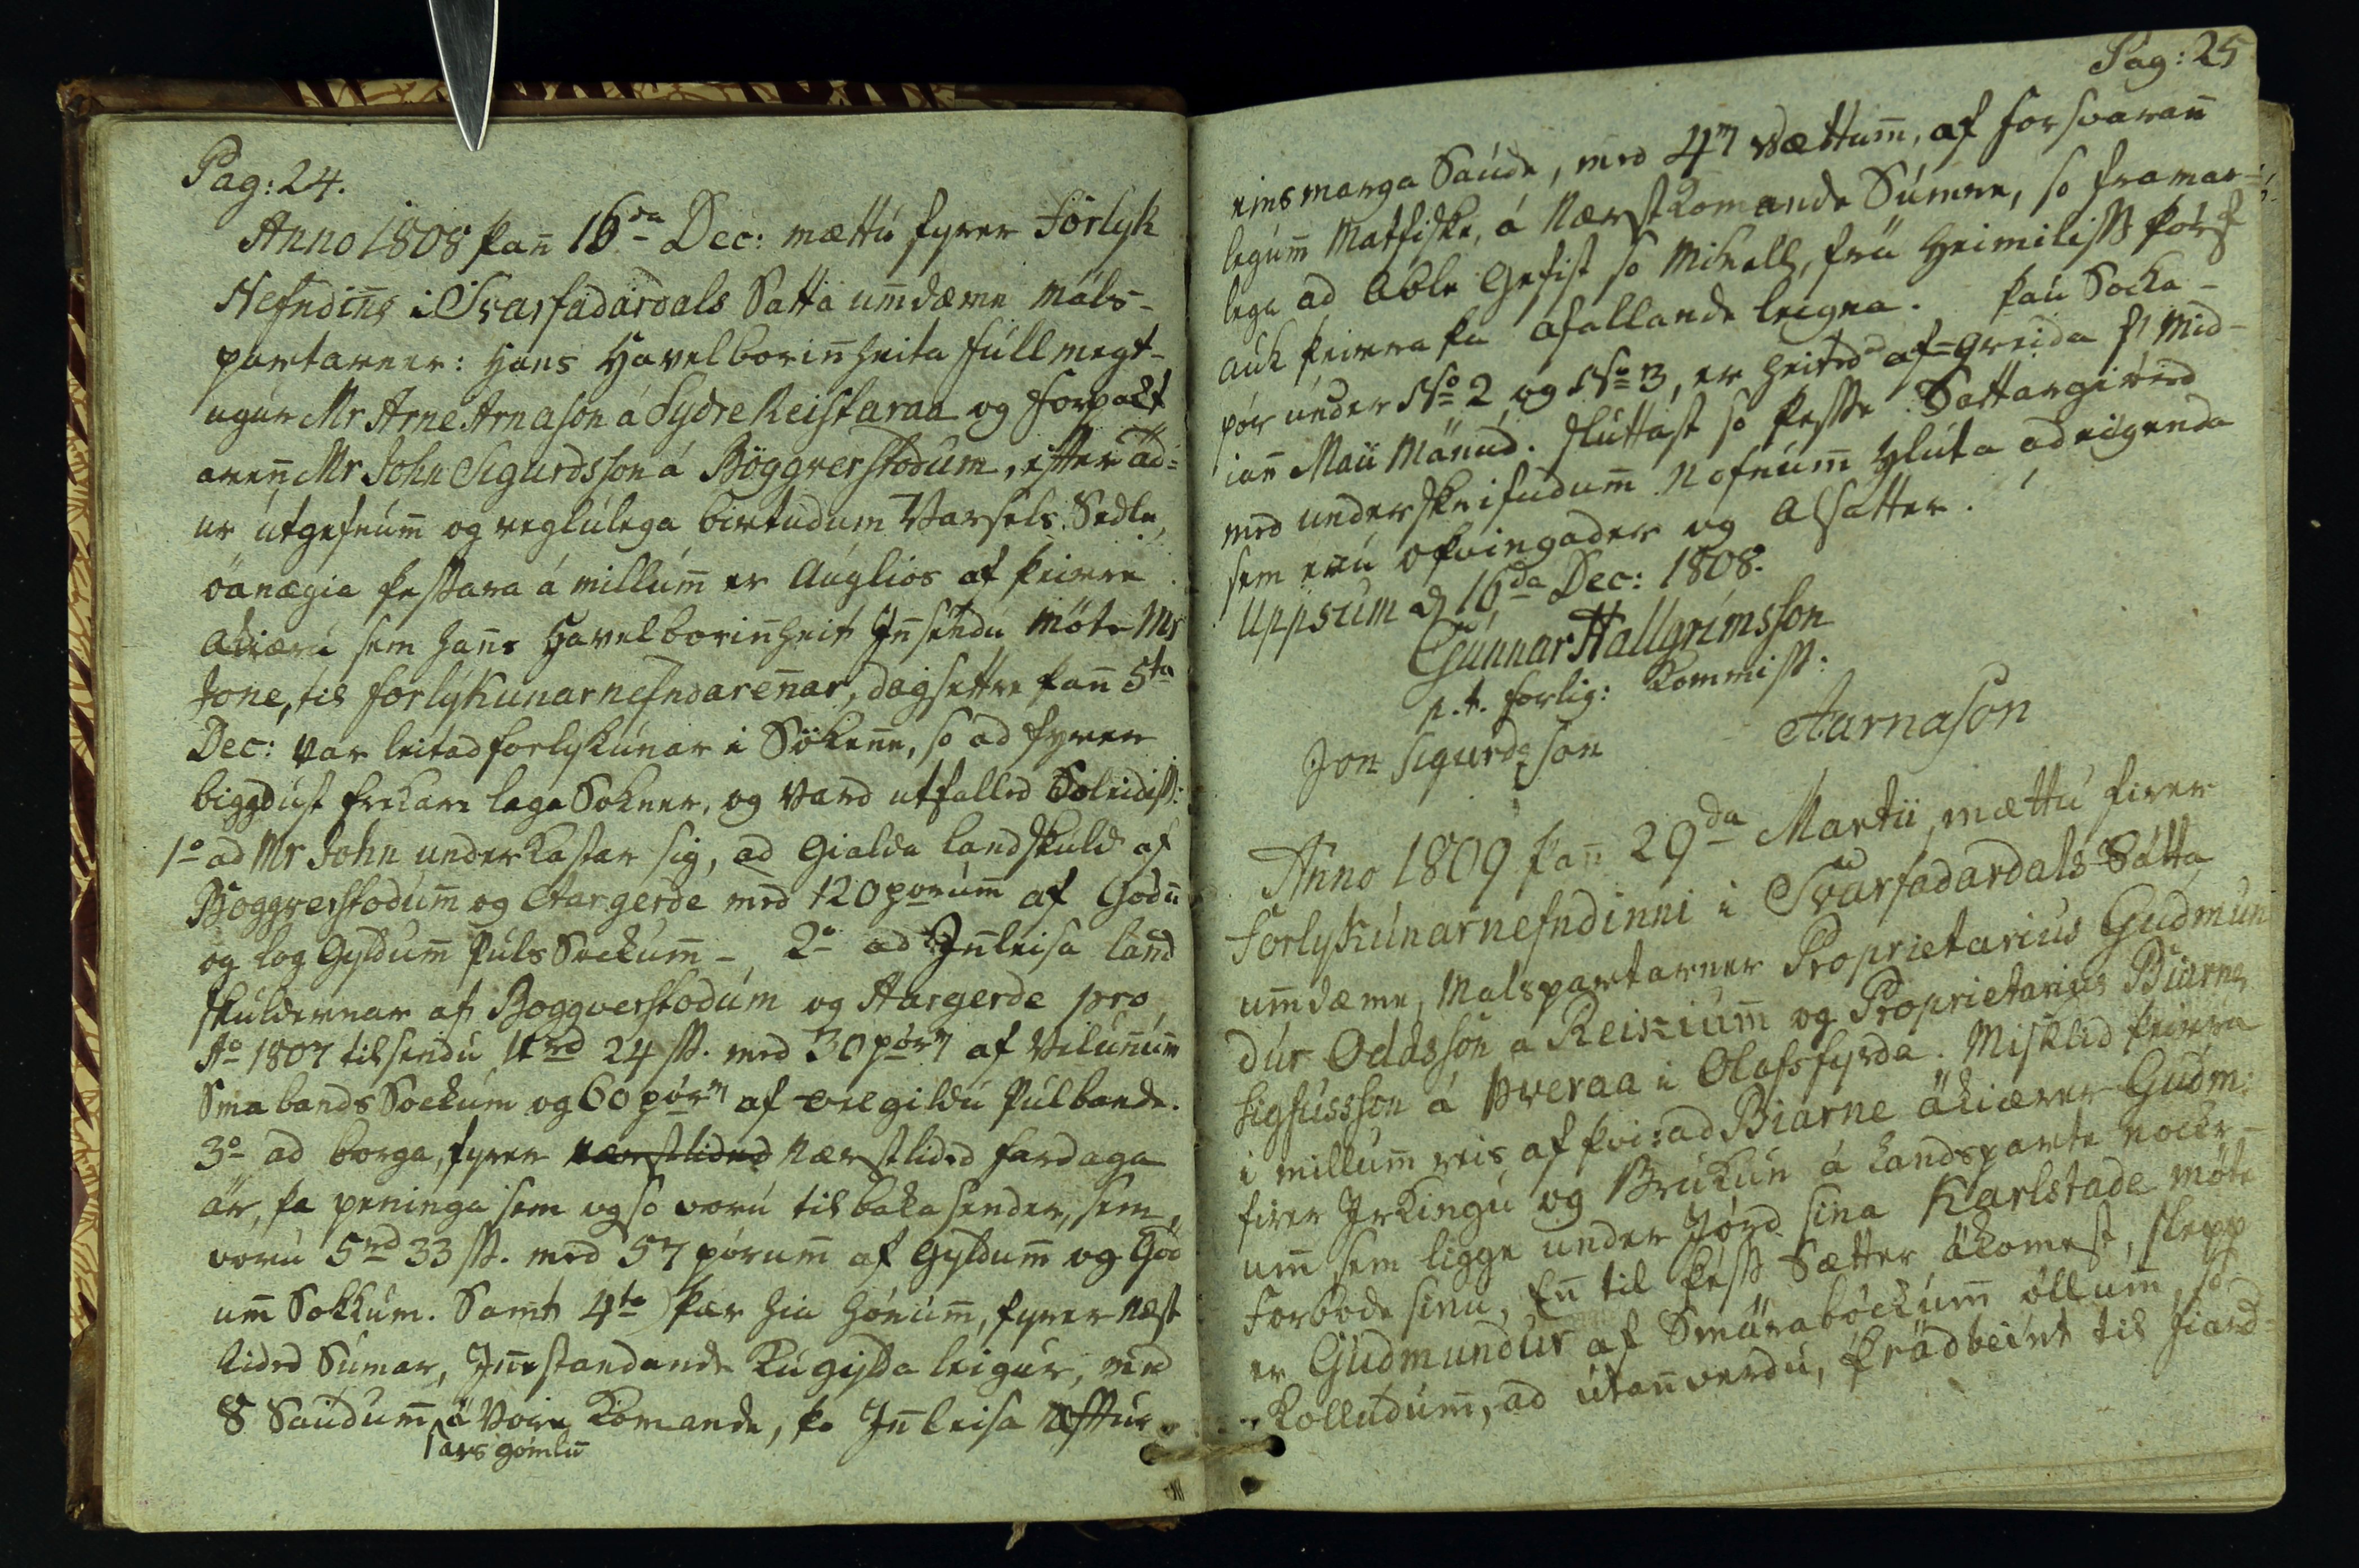 Pag: 24.
Anno 1808 þan̄ 16da Dec: mættú fyrer Forlyk
Nefndin̄e i Svarfadardals Satta um̄dæme máls-
partarner: Hans Havelborin̄heita fúllmegt-
ugur Mr Arne Arnason á Sydre Reistaraa og Forpakt
aren̄ Mr John Sigurdsson á Böggverstodum, efter äd=
ur útgefnúm̄ og reglúlega birtudum Varsels Sedle,
óánægia þessara á millúm̄ er Aúglios af þeirre
Akiæru sem hans Havelborin̄heit In̄sendu móte Mr
Jone, til forlýkunarnefndaren̄ar, dagsettre þan̄ 5ta
Dec: var leitad forlykúnar i Sökenne, so ad fyrer
biggdust frekare laga Sokner, og vard útfalled Soleidiss:
1o ad Mr John underkastar sig, ad Gialda landskuld af
Boggverstodum̄ og Aargerde med 120 porum̄ af Godu
og log Gyldum̄ Púls Sockum̄ - 2o ad In̄leisa land
skuldernar af Boggverstodúm og Aargerde pro
Ao 1807 tilsendu 4rd 24 ss. med 30 pörm af Velun̄um̄
Smabands Sockúm og 60 pörm af velgildu Púlbande.
3o ad borga, fyrer nærstlided Nærstlided fardaga
ár, þa peninga sem ogso vorú tilbaka sender, sem
vorú 5rd 33 ss. med 57 pörum̄ af Gyldum̄ og Göd
um̄ Sokkúm. Samt 4to þær hia hónum̄, fyrer næst
lided Súmar, In̄estandande Kúgillda leigur, med
8 Saúdum̄ á Vore Komande, þo In̄leisa Aftur
ars gomlu
Pag: 25
eins marga Saúde, med 4m vættum̄, af forsvaran̄
legum̄ Matfiske, á Nærstkomande Súmre, so framar=
lega ad Able Gefist so mikell, frá Heimiliss þörf
auk þeirra þa áfallande leigna. þaú Socka-
pör under No 2 og No 3, er heited ad af=greida fyrer Mid-
ian̄ Maii Mánúd. Sluttast so þesse Sattargiörd
med underskrifudum̄ Nofnúm̄ hlúta adeigenda
sem erú oþvingader og Alsatter.
Uppsum d 16da Dec: 1808.
Gunnar Hallgrimsson
p.t. Forlig: Kommiss:
Jon Sigurdsson Aarnason
Anno 1809 þan̄ 29da Martii, mættú firer
Forlykúnarnefndinni i Svarfadardals Sátta
um̄dæme, Malspartarner Proprietarius Gudmun
dúr Oddsson á Reikium̄ og Proprietarius Biarne
Sigfússson á Þveraa i Olafsfyrde. Misklid þeirra
i millum̄ reis af þvi: ad Biarne ákiærer Gudm:
firer Irkingú og Brúkun á landsparte nockr-
um̄ sem ligge under Jörd sina Karlstade móte
Forbode sinu, En̄ til þess Sætter ákomest, slepp
er Gudmundur af Smárabóckúm̄ öllum̄, so
Kolludum̄, ad útan̄verdu, þrädbeint til fiard-